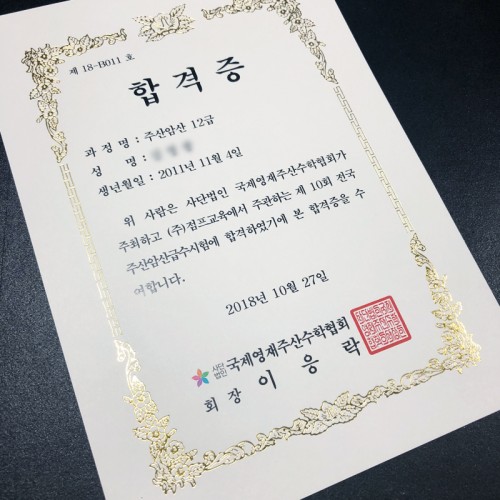 제 18-B011 호
합격증
과 정 명 : 주산암산 12급
성 명 :
생년월일 : 2011년 11월 4일
위 사람은 사단법인 국제영재주산수학협회가
주최하고 (주)점프교육에서 주관하는 제 10회 전국
주산암산급수시험에 합격하였기에 본 합격증을 수
여합니다.
2018년 10월 27일
사단법인 국제영재주산수학협회
회 장 이 응 락